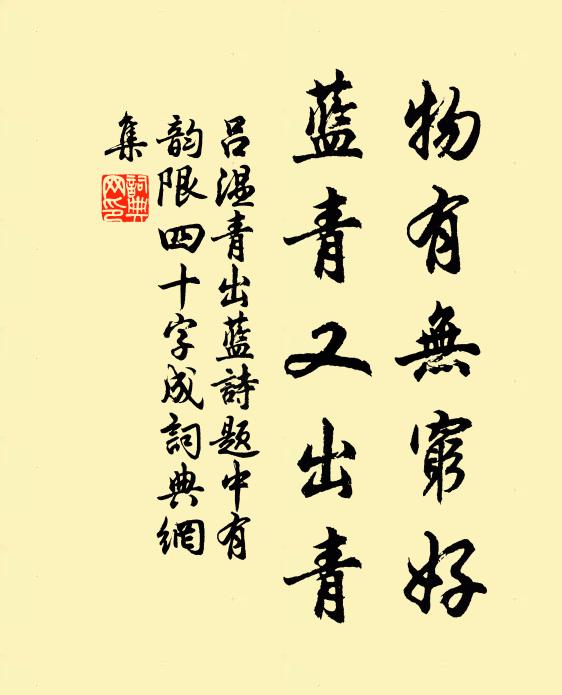 物有無窮好
藍青又出青
呂温青出藍詩題中有
韵限四十字成詞典網
集
詞典
网印